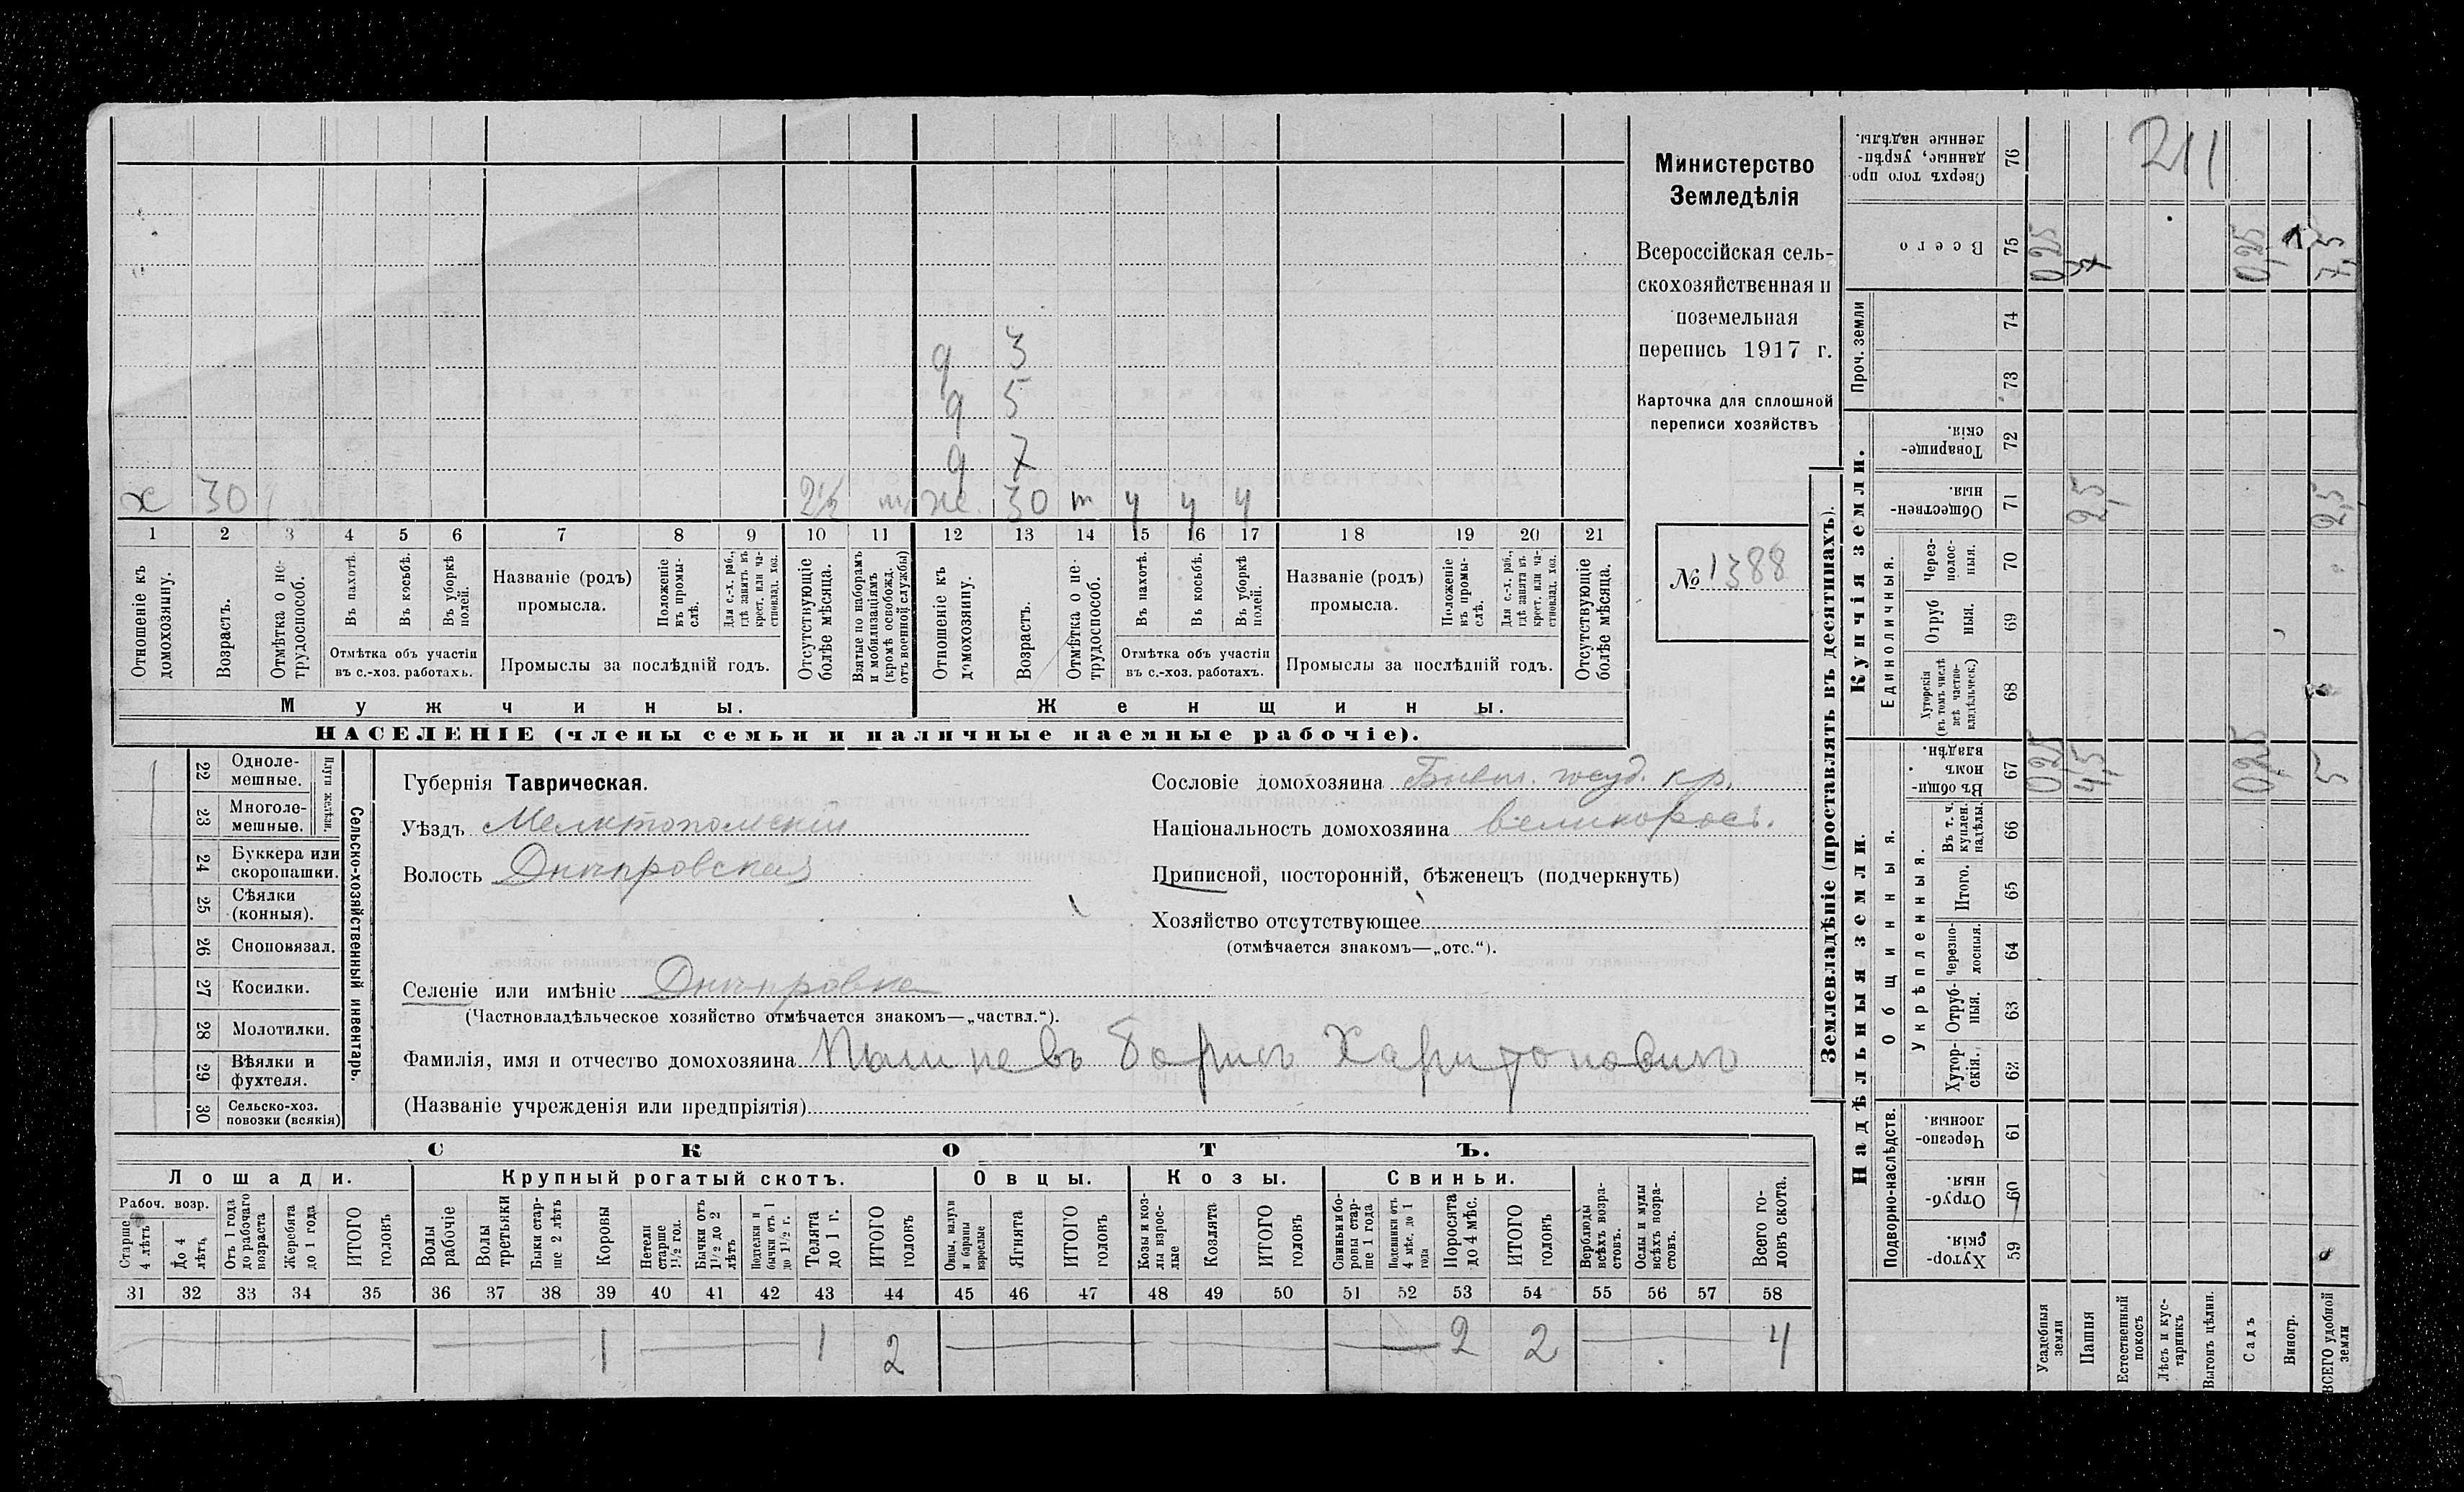 211
Министерство
Земледѣлія
Всероссійская сель-
скохозяйственная и
поземельная
перепись 1917 г.
Карточка для сплошной
переписи хозяйствъ
№ 1388
д 3
д 5
д 7
х 30 2½ же. 30 т ч ч ч
1 2 3 4 5 6 7 8 9 10 11 12 13 14 15 16 17 18 19 20 21
Отношеніе къ домохозяину.
Возрастъ.
Отмѣтка о не-трудоспособ.
Въ пахотѣ.
Въ косьбѣ.
Въ уборкѣ полей.
Отмѣтка объ участіи
въ с.-хоз. работахъ.
Названіе (родъ)
промысла.
Положеніе въ промы-слѣ.
Для с.-х. раб., гдѣ занятъ въ крест. или ча-стновлад. хоз.
Промыслы за послѣдній годъ.
Отсутствующіе болѣе мѣсяца.
Взятые по наборамъ и мобилизаціямъ (кромѣ освобожд. отъ военной службы)
Отношеніе къ домохозяину.
Возрастъ.
Отмѣтка о не-трудоспособ.
Въ пахотѣ.
Въ косьбѣ.
Въ уборкѣ полей.
Отмѣтка объ участіи
въ с.-хоз. работахъ.
Названіе (родъ)
промысла.
Положеніе въ промы-слѣ.
Для с.-х. раб., гдѣ занята въ крест. или ча-стновлад. хоз.
Промыслы за послѣдній годъ.
Отсутствующіе болѣе мѣсяца.
Мужчины. Женщины.
НАСЕЛЕНІЕ (члены семьи и наличные наемные рабочіе).
Сельско-хозяйственный инвентарь.
Плуги желѣзн.
22 Однолемешные.
23 Многолемешные.
24 Буккера или скоропашки.
25 Сѣялки (конныя).
26 Сноповязал.
27 Косилки.
28 Молотилки.
29 Вѣялки и фухтеля.
30 Сельско-хоз. повозки (всякія)
Губернія Таврическая.
Уѣздъ Мелитопольскій
Волость Днѣпровская
Сословіе домохозяина Бывш. госуд. кр.
Національность домохозяина великоросъ.
Приписной, посторонній, бѣженецъ (подчеркнуть)
Хозяйство отсутствующее
(отмѣчается знакомъ—„отс.“).
Селеніе или имѣніе Днѣпровка
(Частновладѣльческое хозяйство отмѣчается знакомъ—„частвл.“).
Фамилія, имя и отчество домохозяина Борисъ Харитоновичъ
(Названіе учрежденія или предпріятія)
СКОТЪ.
Лошади. Крупный рогатый скотъ. Овцы. Козы. Свиньи.
Рабоч. возр.
Старше 4 лѣтъ
До 4 лѣтъ.
Отъ 1 года до рабочаго возраста
Жеребята до 1 года
ИТОГО головъ
Волы рабочіе
Волы третьяки
Быки стар-ше 2 лѣтъ
Коровы
Нетели старше 1½ год.
Бычки отъ 1½ до 2 лѣтъ
Подтелки и бычки отъ 1 до 1½ г.
Телята до 1 г.
ИТОГО головъ
Овцы, валухи и бараны взрослые
Ягнята
ИТОГО головъ
Козы и коз-лы взрос-лые
Козлята
ИТОГО головъ
Свиньи и бо-ровы стар-ше 1 года
Подсвинки отъ 4 мѣс. до 1 года
Поросята до 4 мѣс.
ИТОГО головъ
Верблюды всѣхъ возра-стовъ.
Ослы и мулы всѣхъ возра-стовъ.
Всего го-ловъ скота.
31 32 33 34 35 36 37 38 39 40 41 42 43 44 45 46 47 48 49 50 51 52 53 54 55 56 57 58
1 1 2 2 2 4
Землевладѣніе (проставлять въ десятинахъ).
Надѣльныя земли. Купчія земли. Проч. земли
Подворно-наслѣдств.
Общинныя.
Укрѣпленныя.
Единоличныя.
Хутор-скія. 59
Отруб-ныя. 60
Черезпо-лосныя. 61
Хутор-скія. 62
Отруб-ныя. 63
Черезпо-лосныя. 64
Итого. 65
Въ т. ч. куплен. надѣлы. 66
Въ общин-номъ владѣн. 67
Хуторскія (въ томъ числѣ всѣ частно-владѣльческ.) 68
Отруб ныя. 69
Через-полос-ныя. 70
Обществен-ныя. 71
Товарище-скія. 72
73
74
Всего 75
Сверхъ того про-данные, укрѣп-ленные надѣлы. 76
Усадебныя земли 0,25 0,25
Пашня 4,5 2,5 7
Естественный покосъ
Лѣсъ и кус-тарникъ
Выгонъ цѣлин.
Садъ 0,25 0,25
Виногр.
ВСЕГО удобной земли 5 2,5 7,5